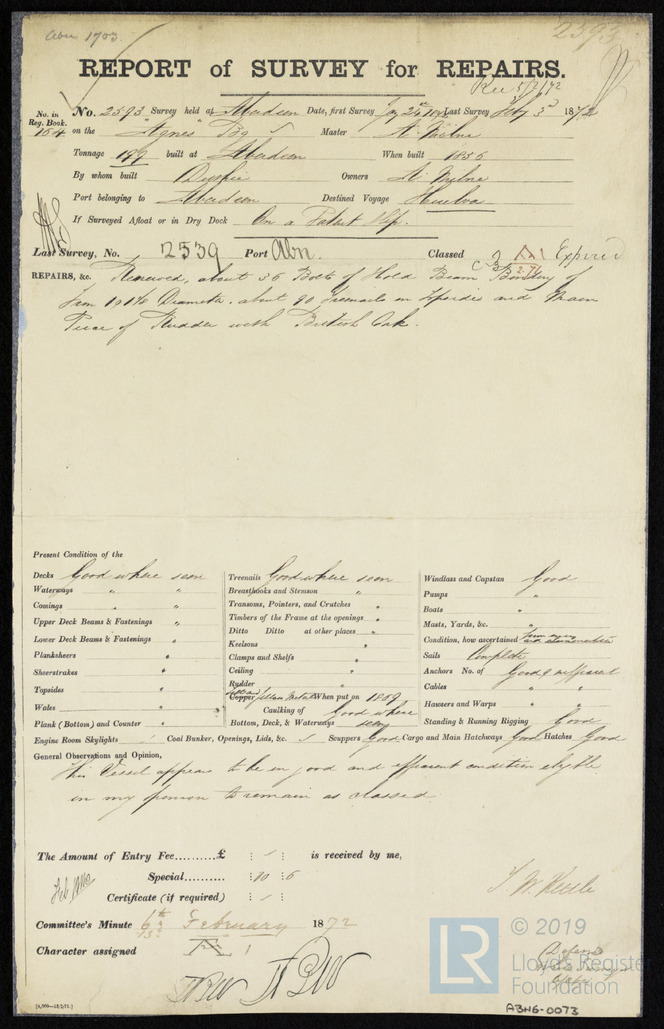 Abn 1703
2593
REPORT of SURVEY for REPAIRS.
Rec 5/2/72
No. in Reg. Book. No. 2593 Survey held at Aberdeen Date, first Survey Jany 24th 1872 Last Survey Feby 3d 1872
164 on the "Agnes" Bg Master A. Milne
Tonnage 199 built at Aberdeen When built 1856
By whom built Duthie Owners A. Milne
Port belonging to Aberdeen Destined Voyage Huelva
If Surveyed Afloat or in Dry Dock On a Patent Slip.
Last Survey, No. 2539 Port Abn. Classed Expired
REPAIRS, &c. Renewed, about 36 Bolts of Hold Beam of
Iron 1 & 1 1/8 Diameter. about 90 Treenails in and Main
Piece of Rudder with British Oak.
Present Condition of the
Decks Good where seen
Waterways " "
Comings " "
Upper Deck Beams & Fastenings "
Lower Deck Beams & Fastenings "
Planksheers "
Sheerstrakes "
Topsides "
Wales "
Plank (Bottom) and Counter "
Treenails Good where seen
Breasthooks and Stemson "
Transoms, Pointers, and Crutches "
Timbers of the Frame at the openings "
Ditto Ditto at other places "
Keelsons "
Clamps and Shelfs "
Ceiling "
Rudder "
Copper Yellow Metal When put on 1869
Caulking of Good where
Bottom, Deck, & Waterways seen
Windlass and Capstan Good
Pumps "
Boats "
Masts, Yards, &c. "
Condition, how ascertained
Sails Complete
Anchors No. of Good & efficient
Cables " "
Hawsers and Warps " "
Standing & Running Rigging Good
Engine Room Skylights Coal Bunker, Openings, Lids, &c. Scuppers Good Cargo and Main Hatchways Good Hatches Good
General Observations and Opinion,
This Vessel appears to be in good and efficient condition eligible
in my opinion to remain as classed
The Amount of Entry Fee..........£ : : is received by me,
Special.......... : 10 : 6
Certificate (if required) : :
Committee's Minute 6th February 1872
Character assigned A 1
© 2019
LR Lloyd's Register
Foundation
ABN6-0073